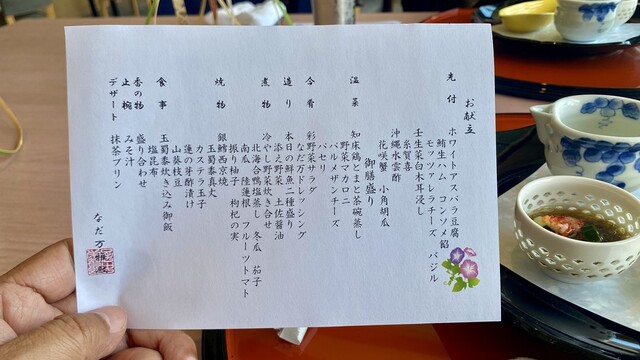 お献立
先付 ホワイトアスパラ豆腐
鮪生ハム コンソメ餡
モッツァレラチーズ バジル
壬生菜白木耳浸し
糸賀喜
沖縄水雲酢
花咲蟹 小角胡瓜
御膳盛り
温菜 知床鶏とまと茶碗蒸し
野菜マカロニ
パルメザンチーズ
パセリ
合肴 彩野菜サラダ
なだ万ドレッシング
造り 本日の鮮魚二種盛り
添え野菜 土佐醤油
煮物 冷やし野菜炊き合せ
北海合鴨塩蒸し 冬瓜 茄子
南瓜 陸蓮根 フルーツトマト
振り柚子 枸杞の実
焼物 銀鱈西京焼
玉蜀黍真丈
カステラ玉子
蓮の芽酢漬け
山葵枝豆
食事 玉蜀黍炊き込み御飯
塩昆布
香の物 盛り合わせ
止椀 みそ汁
デザート 抹茶プリン
なだ万